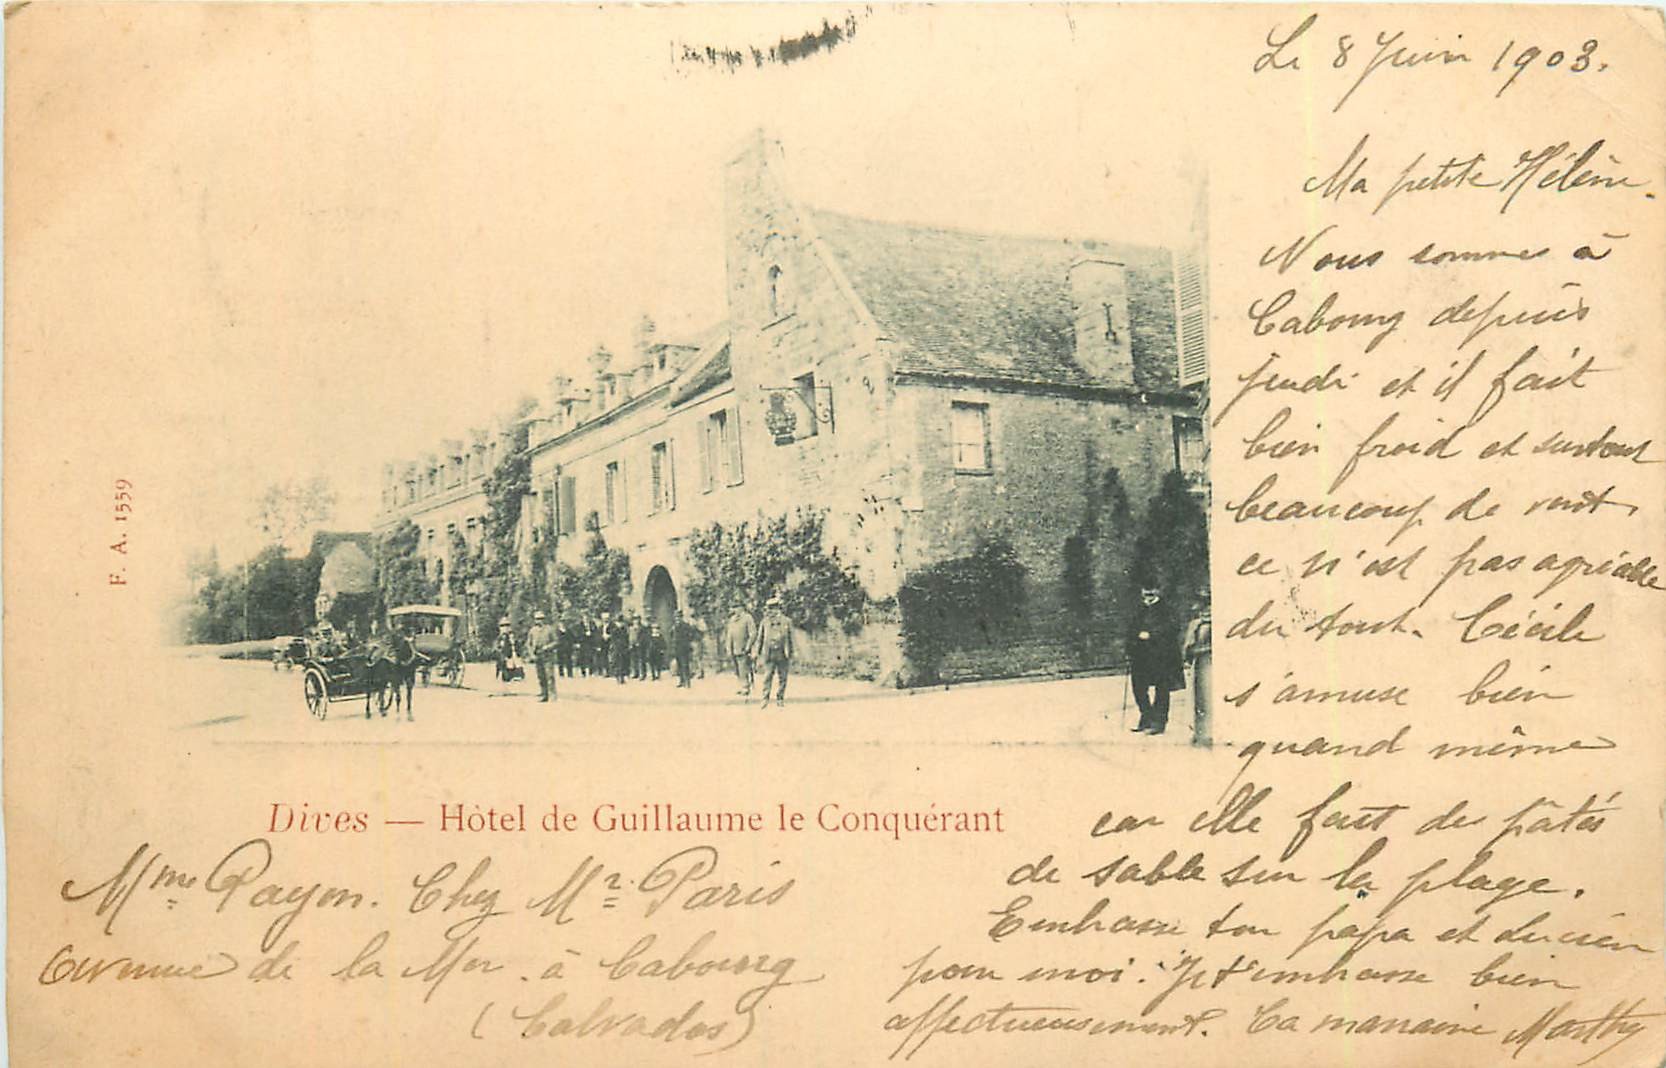 Le 8 Juin 1903.
Ma petite Hélène.
Nous sommes à
Cabourg depuis
jeudi et il fait
bien froid et surtout
beaucoup de vent,
ce n'est pas agréable
du tout. Cécile
s'amuse bien
quand même
car elle fait des pâtés
de sable sur la plage.
Embrasse ton papa et Lucien
pour moi. Je t'embrasse bien
affectueusement. Ta marraine Marthe
F. A. 1559
Dives — Hôtel de Guillaume le Conquérant
Mme Payon. Chez Mr Paris
Avenue de la Mer. à Cabourg
(Calvados)